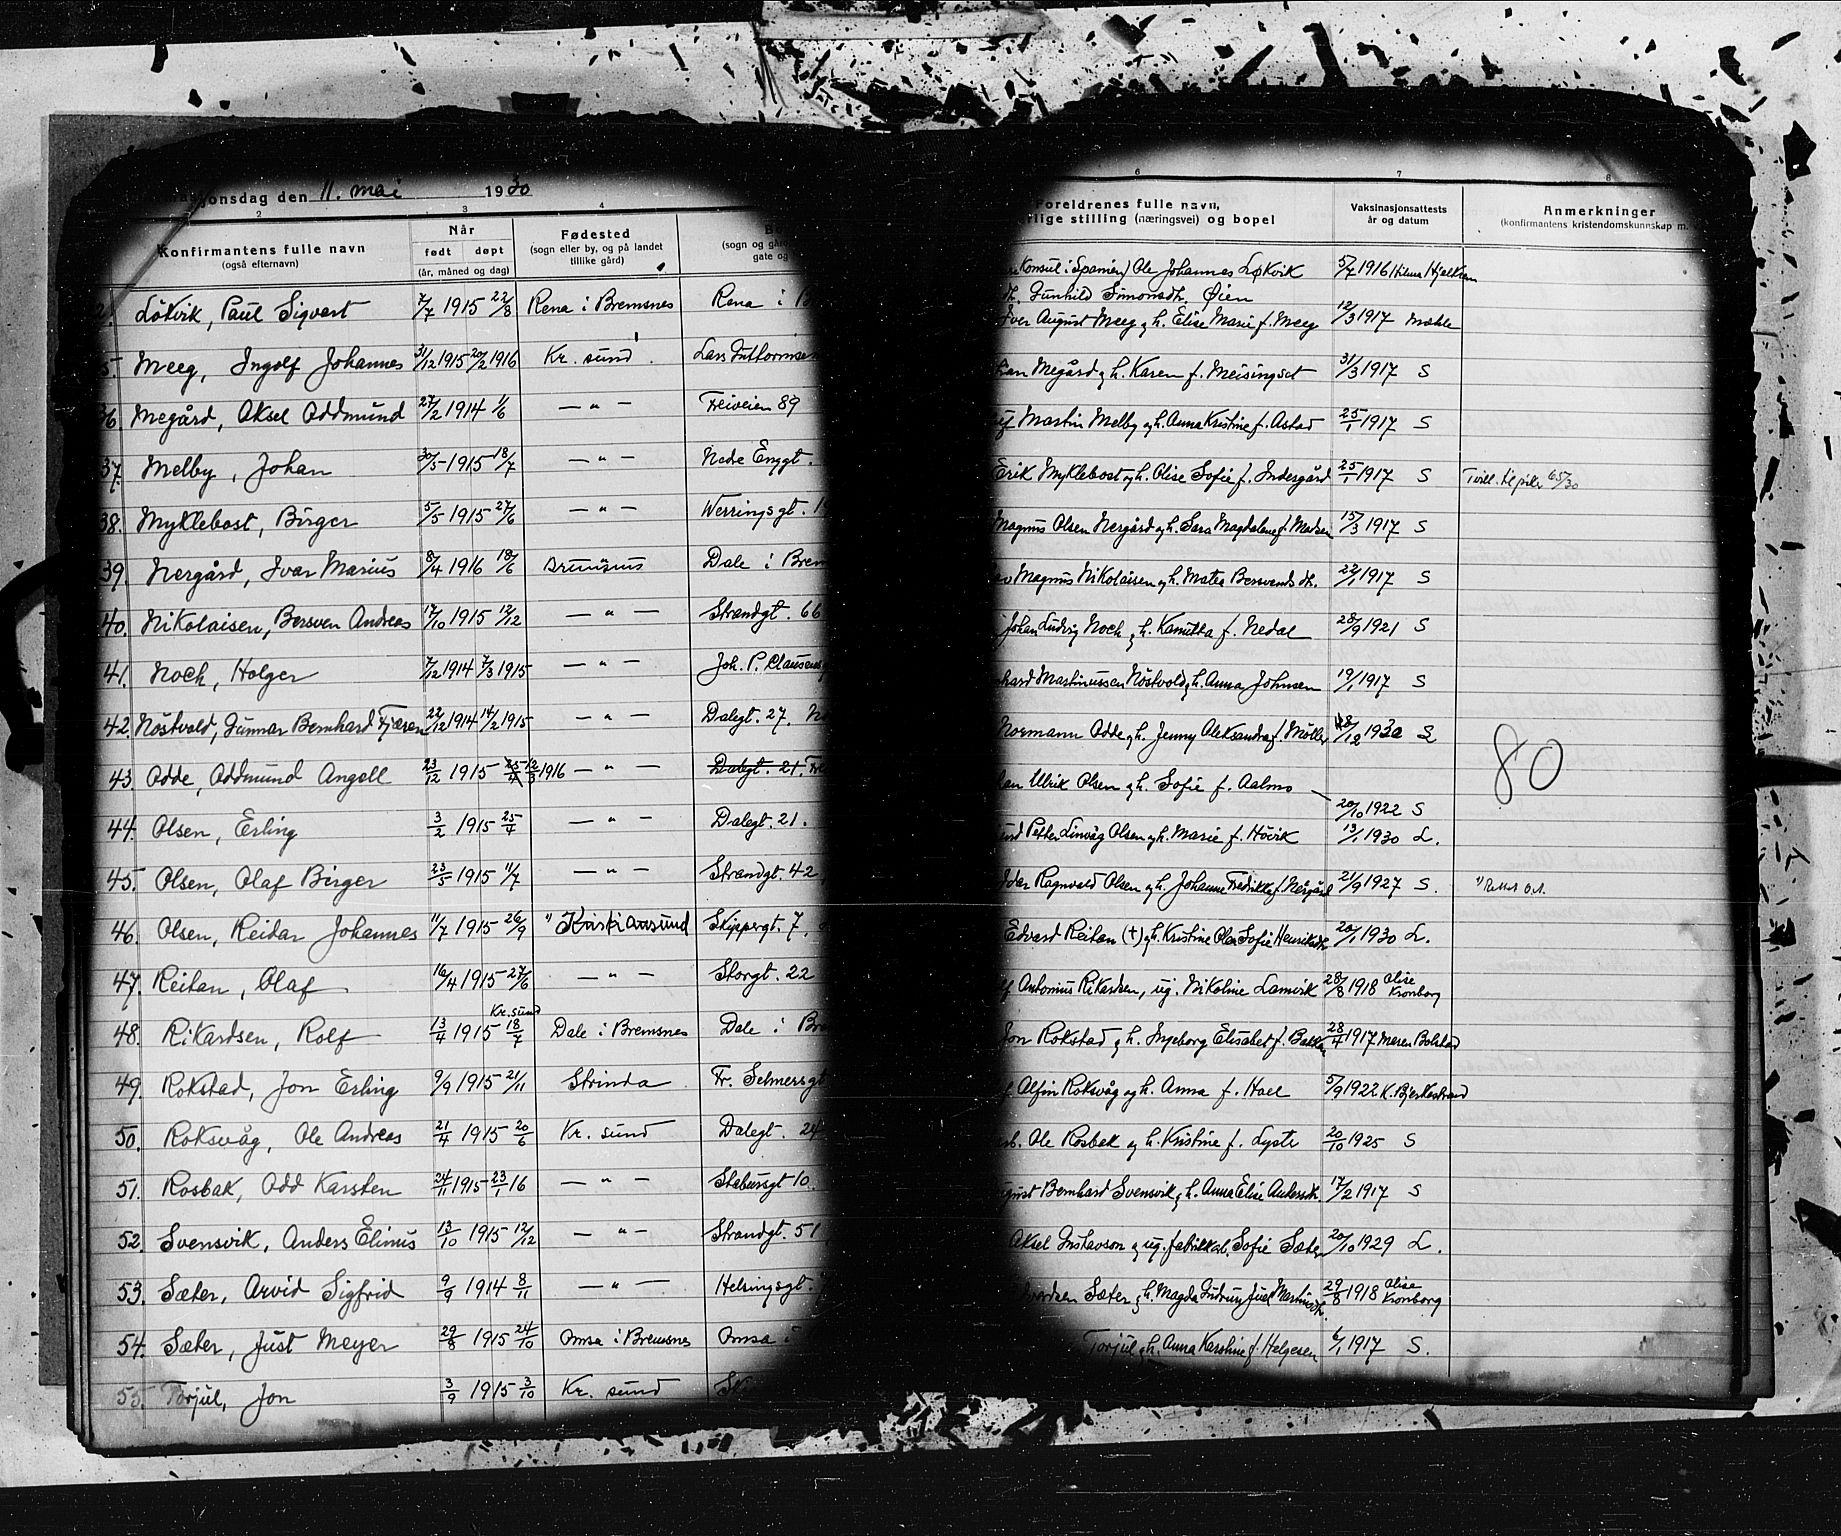 onsdag den 11. mai 1930
2 3 4
Konfirmantens fulle navn
(også efternavn)
Når
født døpt
(år, måned og dag)
Fødested
(sogn eller by, og på landet
tillike gård)
(sogn og går
gate og
Løkvik, Paul Sigvart 7/7 1915 22/8 Rena i Bremsnes Rena i
Meeg, Ingolf Johannes 31/12 1915 20/2 1916 Kr. sund. Lars Guttormsen
36. Megård, Aksel Oddmund 27/2 1914 1/6 — " — Freiveien 89
37. Melby, Johan 30/5 1915 18/7 — " — Nedre Enggt.
38. Myklebost, Birger 5/5 1915 27/6 — " — Werringsgt.
39. Nergård, Ivar Marius 8/4 1916 18/6 Dale i Brem
40. Nikolaisen, Bersven Andreas 17/10 1915 12/12 — " — Strandgt. 66
41. Noch, Holger 7/12 1914 7/3 1915 — " — Joh. P. Clausens
42. Nöstvold, Gunnar Bernhard Fjæren 22/12 1914 14/2 1915 — " — Dalegt. 27.
43. Odde, Oddmund Angell 23/12 1915 25/4 12/3 1916 — " — Dalegt. 21.
44. Olsen, Erling 3/2 1915 25/4 — " — Dalegt. 21.
45. Olsen, Olaf Birger 23/5 1915 11/7 — " — Strandgt. 42
46. Olsen, Reidar Johannes 11/7 1915 26/9 " Kristiansund Skippergt. 7
47. Reitan, Olaf 16/4 1915 27/6 — " — Storgt. 22
Kr. sund
48. Rikardsen, Rolf 13/4 1915 18/7 Dale i Bremsnes Dale i
49. Rokstad, Jon Erling 9/9 1915 21/11 Strinda Fr. Selmersgt
50. Roksvåg, Ole Andreas 21/4 1915 20/6 Kr. sund Dalegt. 24
51. Rosbak, Odd Karsten 24/11 1915 23/1 16 — " — Stabursgt 10.
52. Svensvik, Anders Elinus 13/10 1915 12/12 — " — Strandgt. 51
53. Sæter, Arvid Sigfrid 9/9 1914 8/11 — " — Helsingsgt.
54. Sæter, Just Meyer 29/8 1915 24/10 Omsa i Bremsnes Omsa i
55. Torjul, Jon 3/9 1915 3/10 Kr. sund
6 7 8
Foreldrenes fulle navn,
rlige stilling (næringsvei) og bopel
Vaksinasjonsattests
år og datum
Anmerkninger
(konfirmantens kristendomskunnskap m.
Konsul i Spanien) Ole Johannes Løkvik 5/7 1916 Hilma Hjelkrem
Gunhild Simonsdh. Øien
Iver August Meeg og h. Elise Marie f. Meeg 12/3 1917 Mæhle
Megård og h. Karen f. Meisingset 31/3 1917 S
Martin Melby og h. Anna Kristine f. Astad 25/1 1917 S
Erik Myklebost og h. Olise Sofie f. Indergård 25/1 1917 S
Magnus Olsen Nergård og h. Sara Magdalene f. Madsen 15/3 1917 S
Magnus Nikolaisen og h. Matea Bersvendsdh. 22/1 1917 S
Johan Ludvig Noch og h. Kamitta f. Nedal 28/9 1921 S
Martinussen Nöstvold og h. Anna Johnsen 19/1 1917 S
Normann Odde og h. Jenny Aleksandra f. Möller 18/12 1930 S
80
Ulrik Olsen og h. Sofie f. Aalmo — 20/10 1922 S
Petter Linvåg Olsen og h. Marie f. Hövik 13/1 1930 L.
Ragnvald Olsen og h. Johanne Fredrikke f. Nergård 21/9 1927 S.
Edvard Reitan (†) og h. Kristine Olea Sofie Henriksdh. 20/1 1930 L.
Antonius Rikardsen, ug. Nikoline Lamvik 28/8 1918 Olise Kronborg
Jon Rokstad og h. Ingeborg Elisabet f. Bakken 28/4 1917 Maren Bolstad
Alfin Roksvåg og h. Anna f. Hoel 5/9 1922 K. Bjerkestrand
Ole Rosbak og h. Kristine f. Lystr 20/10 1925 S
Bernhard Svensvik og h. Anna Elise Andersdh. 17/2 1917 S
Aksel Gustavson og ug. fabrikkarb. Sofie Sæter 20/10 1929 L.
Sæter og h. Magda Gudrun Juel Martinsdh. 29/8 1918 Olise Kronborg
Torjul og h. Anna Kerstine f. Helgesen 6/1 1917 S.